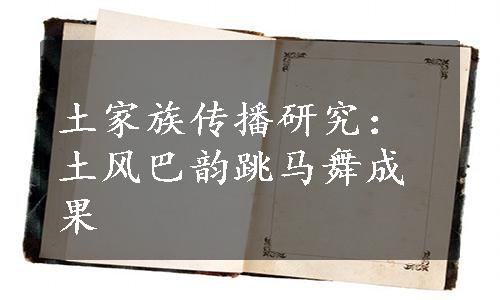 土家族传播研究：
土风巴韵跳马舞成
果